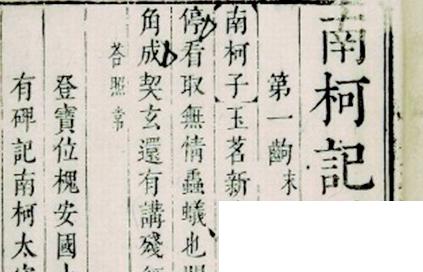 南柯記
第一齣末
南柯子玉茗新
停看取無情蟲蟻也
角成契玄還有講殘
答照常
登寶位槐安國
有碑記南柯太